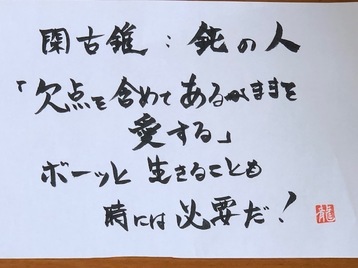 閑古錐：鈍の人
「欠点を含めてあるがままを
愛する」
ボーッと生きることも
時には必要だ！
龍